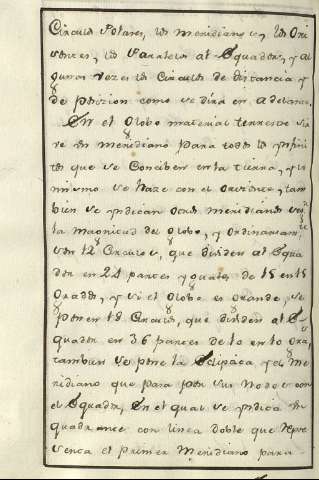 Circulos Polares, los meridianos, y los Ori
zontes, los Paralelos al Equador, y al
gunas vezes los Circulos de distancia y
de posizion como se dira en adelante.
En el Globo material terrestre sir
ve un meridiano para todos los
que se conciben en la tierra, y lo
mismo se haze con el Orizonte, tam
bien se indican otros meridianos
la magnitud del Globo, y Ordinariam
son 12 Circulos, que dividen al Equa
dor en 24 partes yguales de 15 en 15
Grados, y si el Globo es Grande, se
ponen 18 Circulos, que dividen al E
quador en 36 partes de 10 en 10 Gra,
tambien se pone la Eclipica y el Me
ridiano que pasa por sus Nodos con
el Equador, En el qual se yndica un
quadrante con linea doble que repre
senta el Primer Meridiano para